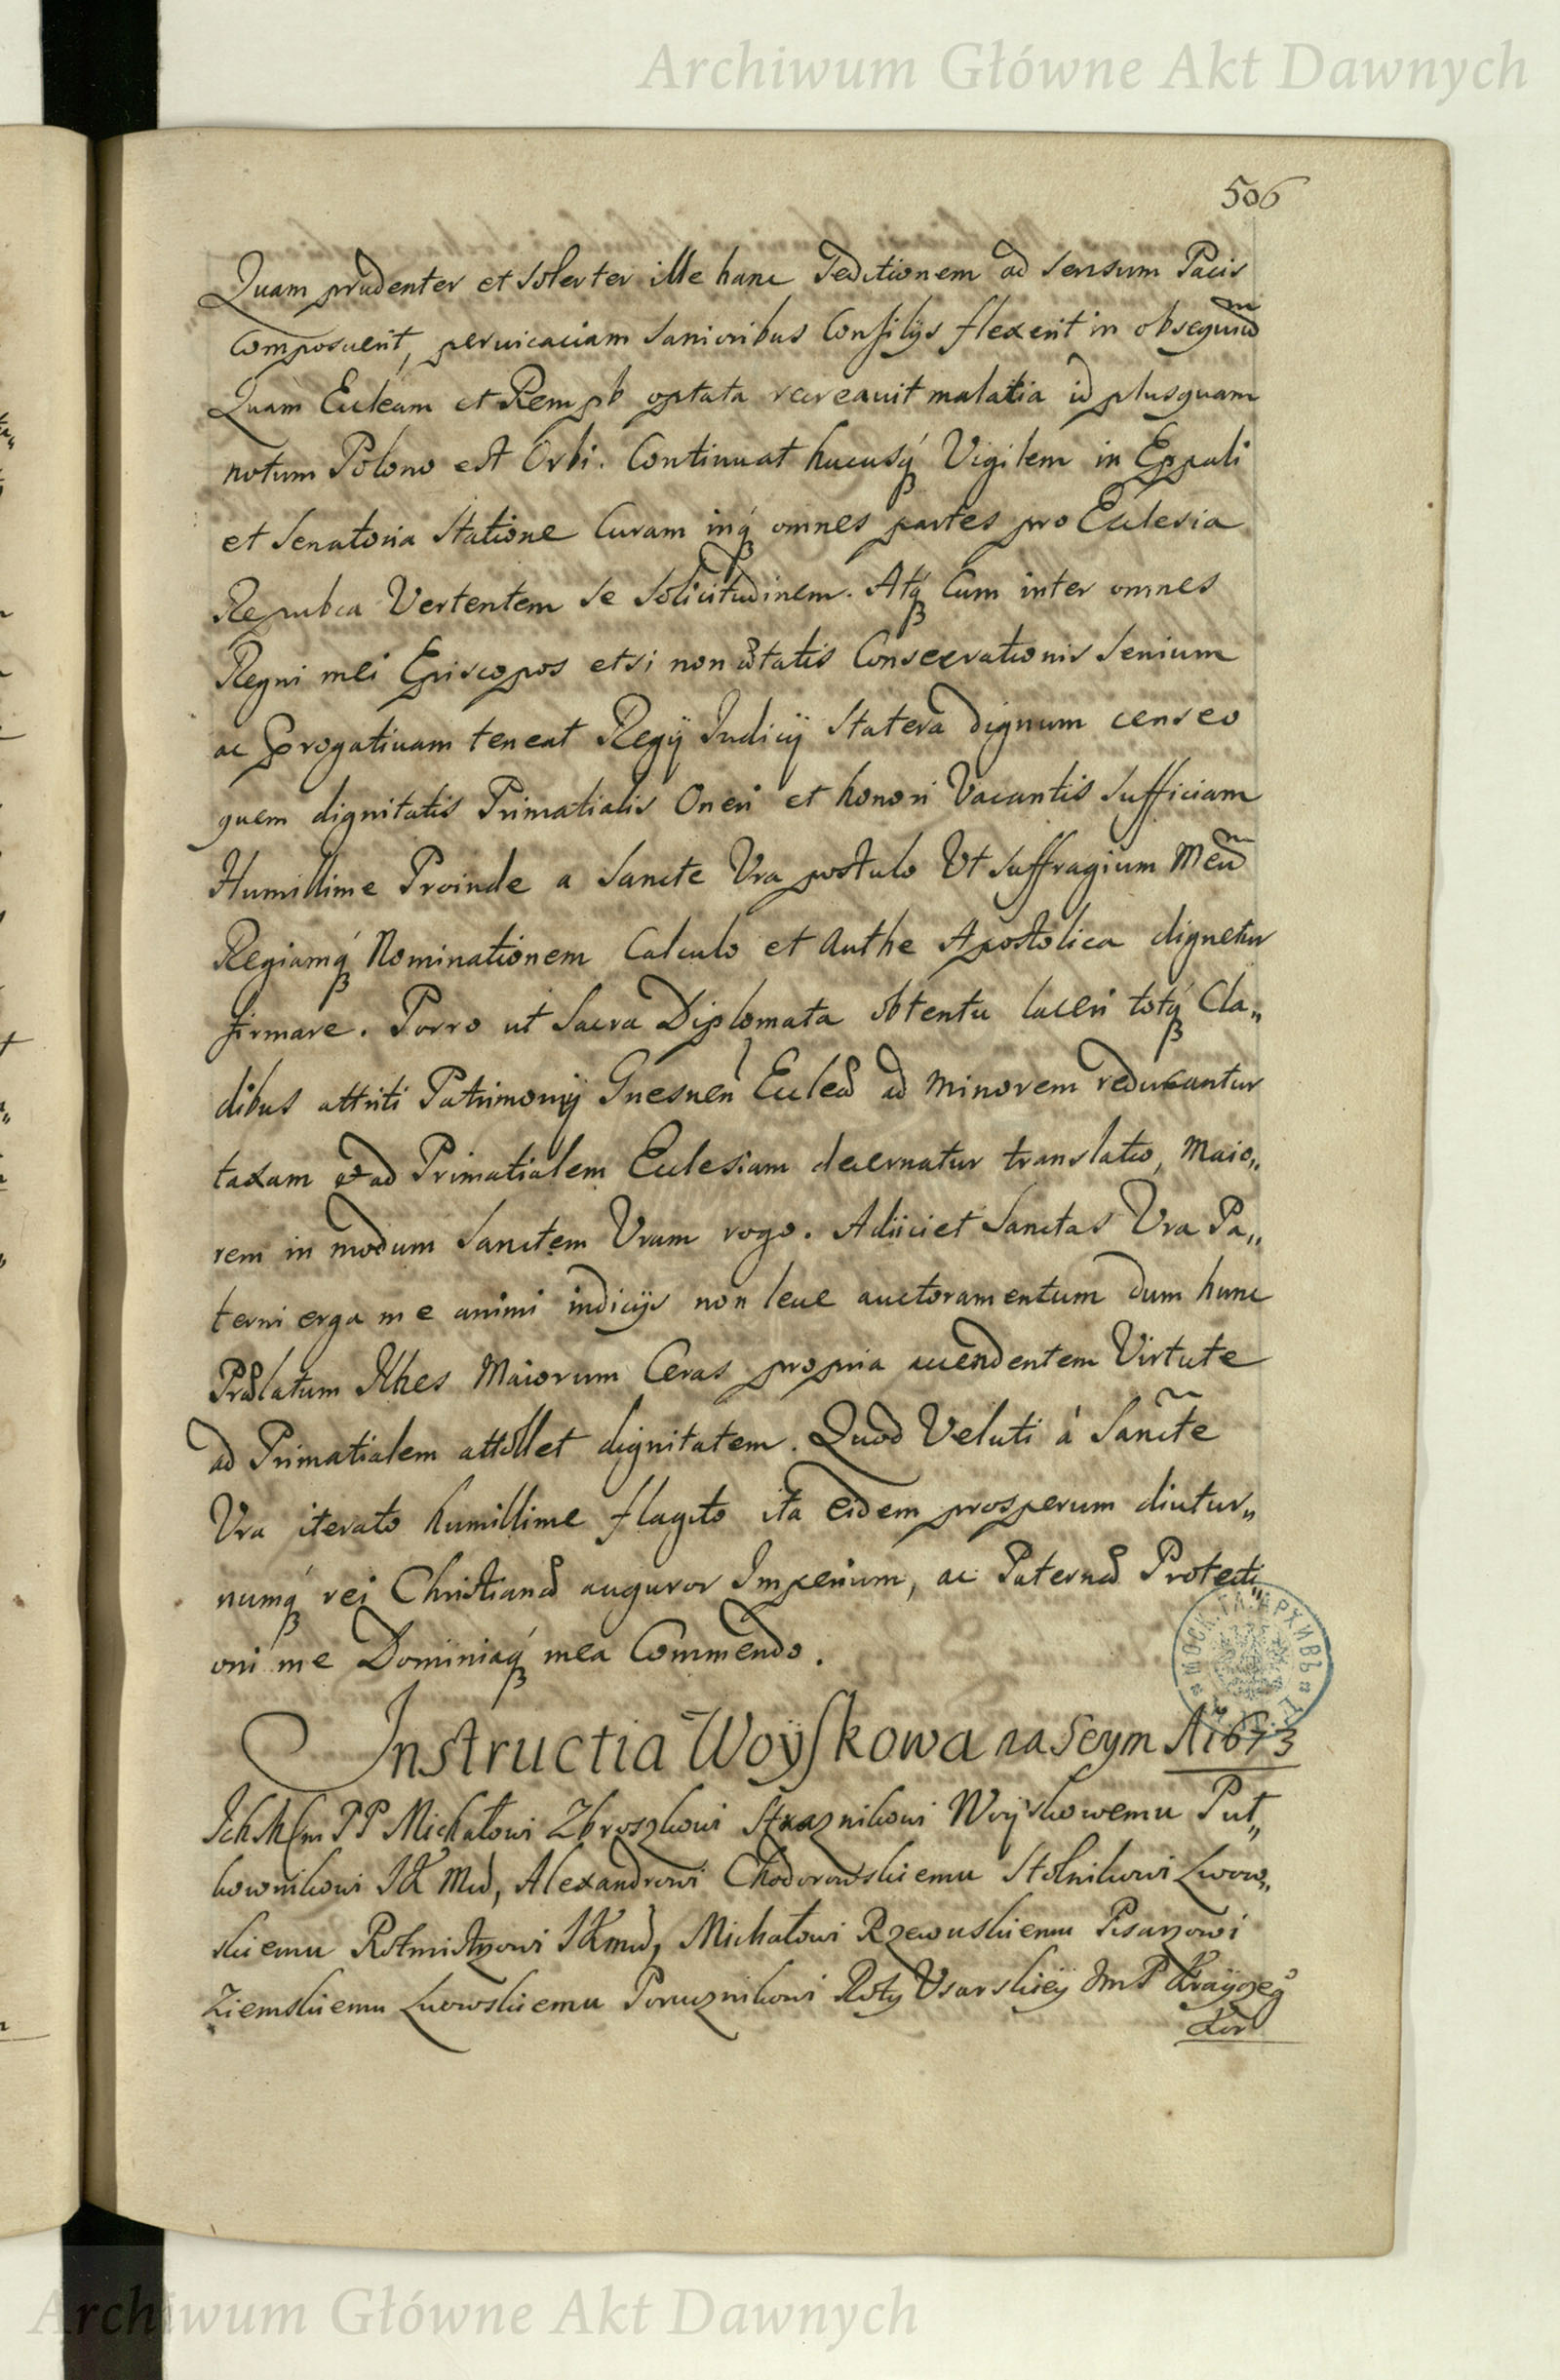 Archiwum Główne Akt Dawnych
506
Quam prudenter et solerter ille hanc seditionem ad sensum Pacis
composuerit, pervicaciam sanioribus Consilijs flexerit in obsequium
Quàm Eccleam et Rempb optata recreavit malatia id plusquam
notum Polono est Orbi. Continuat hucusq Vigilem in Eppali
et Senatoria Statione Curam inq omnes partes pro Ecclesia
Repubca Vertentem se Solicitudinem. Atq Cum inter omnes
Regni mei Episcopos etsi non ætatis Consecrationis Senium
ac Prrogativam teneat Regÿ Iudicÿ Statera dignum censeo
quem dignitatis Primatialis Oneri et honori Vacantis sufficiam
Humillime Proinde a Sancte Vra postulo Vt suffragium Meum
Regiamq Nominationem Calculo et Authe Apostolica dignetur
firmare. Porro ut Sacra Diplomata obtentu laceri totq Cla„
dibus attriti Patrimonÿ Gnesnen Ecclæ ad minorem reducantur
taxam et ad Primatialem Ecclesiam decernatur translatio, maio„
rem in modum Sanctem Vram rogo. Adiiciet Sanctas Vra Pa„
terni erga me animi indicijs non leve auctoramentum dum hunc
Prælatum Illres Maiorum Ceras propria accendentem Virtute
ad Primatialem attollet dignitatem. Quod Veluti à Sancte
Vra iterato humillime flagito ita eidem prosperum diutur„
numq rei Christianæ auguror Imperium, ac Paternæ Protecti„
oni me Dominiaq mea Commendo.
МОСК. ГЛ. АРХИВЪ
Instructia Woÿskowa na Seym A 1673
Ich Mciom PP Michałowi Zbroszkowi Straznikowi Woÿskowemu Puł„
kownikowi JK Mci, Alexandrowi Chodorowskiemu Stolnikowi Lwow„
skiemu Rotmistrzowi JKmci, Michałowi Rzewuskiemu Pisarzowi
Ziemskiemu Lwowskiemu Porucznikowi Roty Vsarskiëÿ JmP Kraÿczeg°
Kor
Archiwum Główne Akt Dawnych